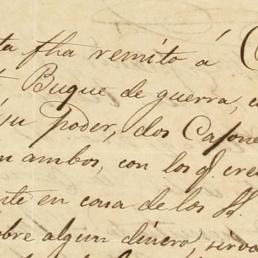 ta fha remito á
Buque de guerra,
su poder, dos Cajone
n ambos, con los q. cre
nte en casa de los SS.
obre algun dinero, sirva